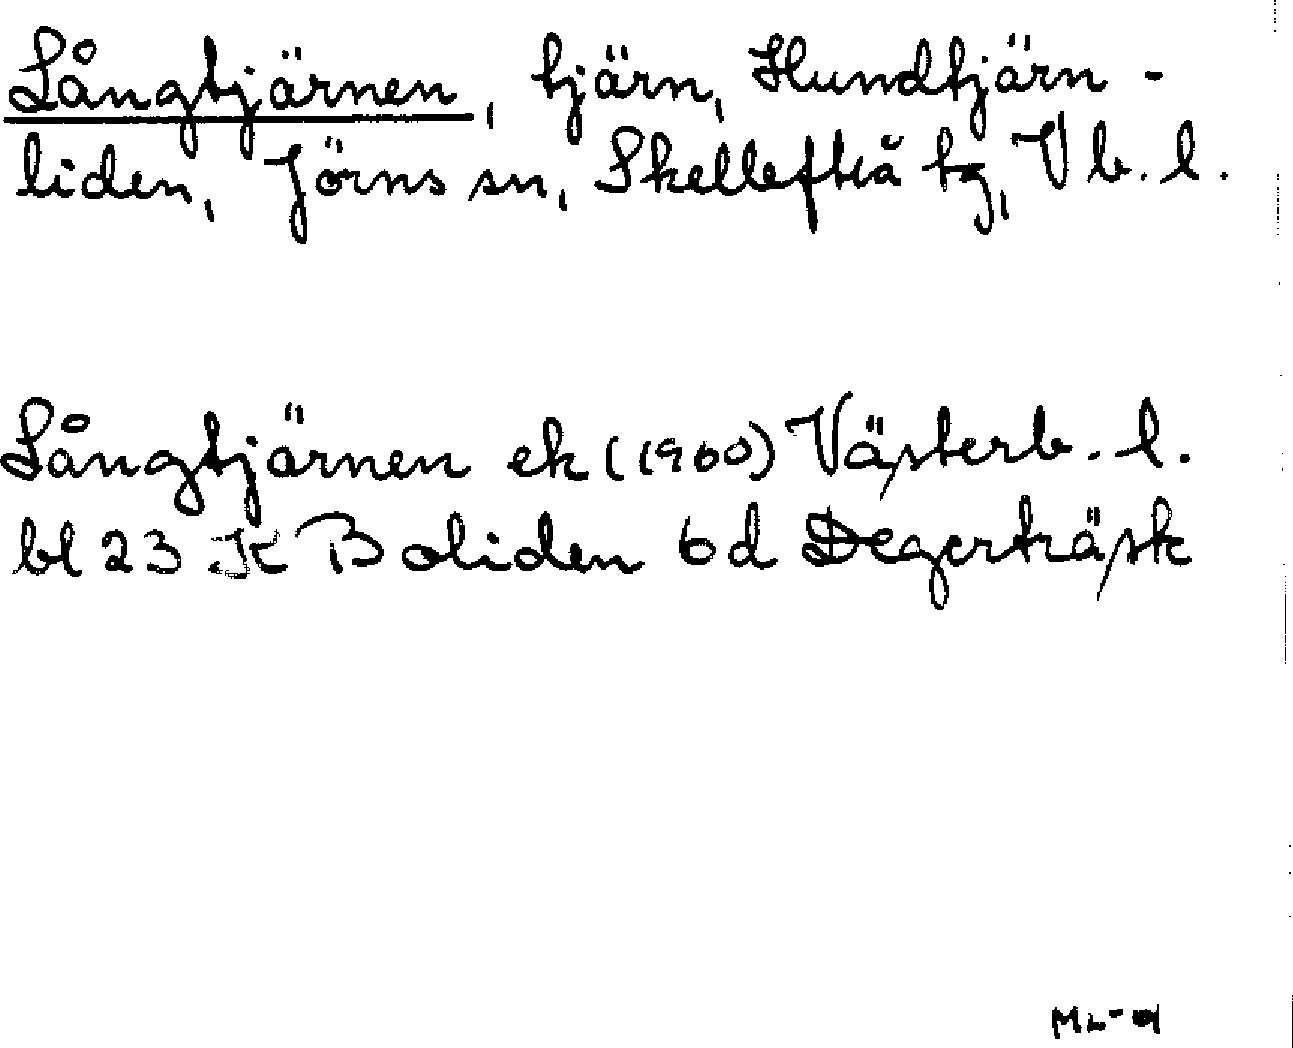 Långtjärnen, tjärn, Hundtjärn-
liden, Jörns sn, Skellefteå tg, Vb. l.
Långtjärnen ek (1960) Västerb. l.
bl 23 K Boliden 6d Degerträsk